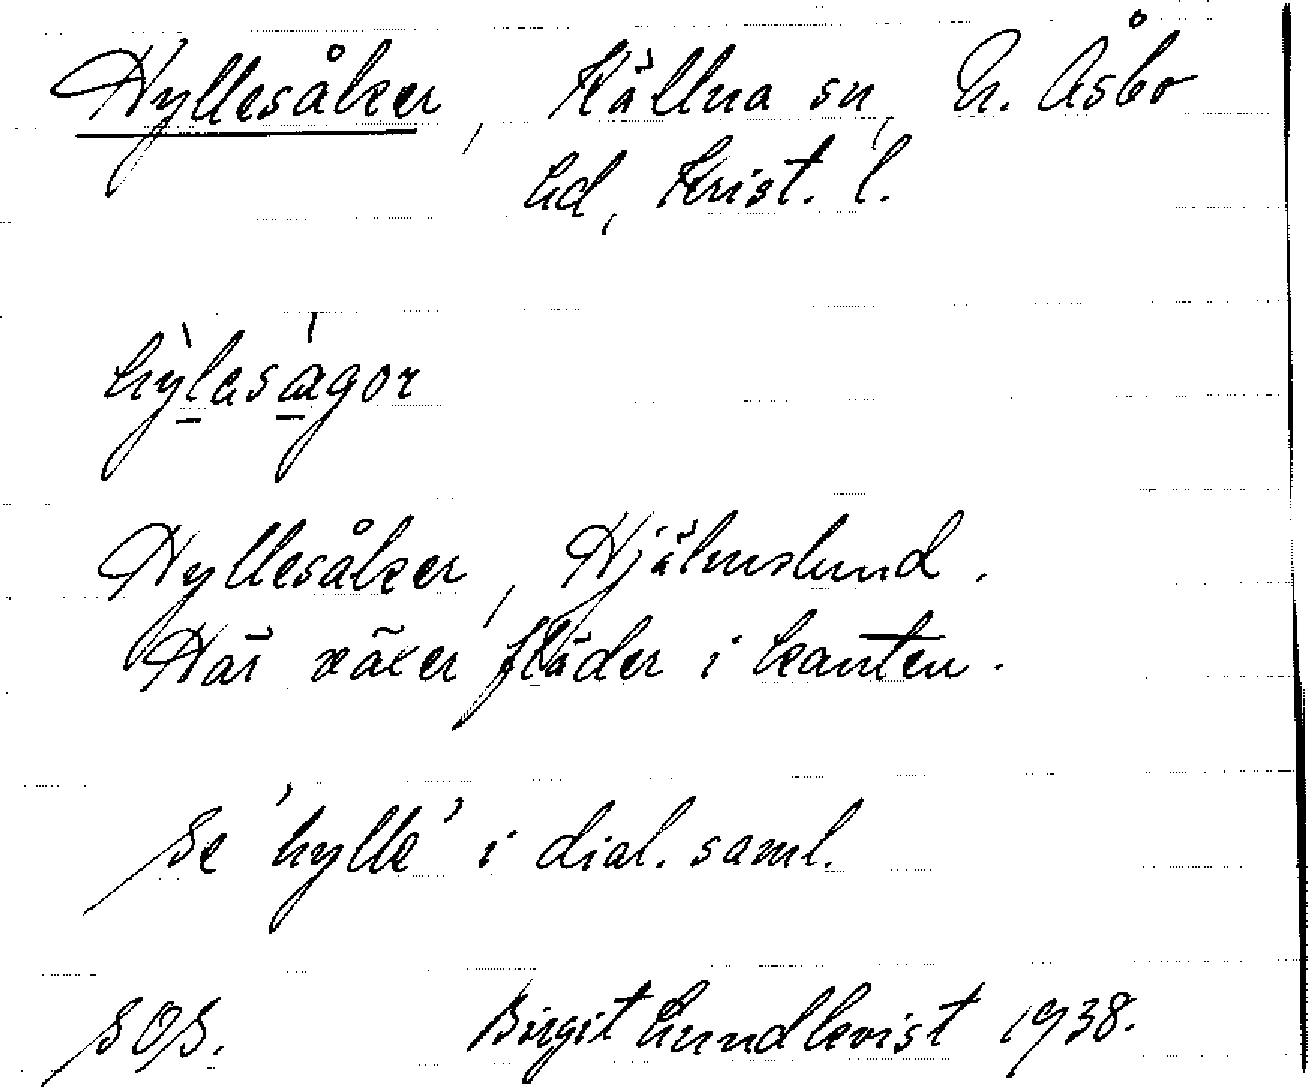 Hyllesåker, Källna sn, N. Åsbo
hd, Krist. l.
hỳleságor
Hyllesåker, Hjälmslund.
Här växer fläder i kanten.
Se 'hylle' i dial. saml.
SOS. Birgit Lundkvist 1938.